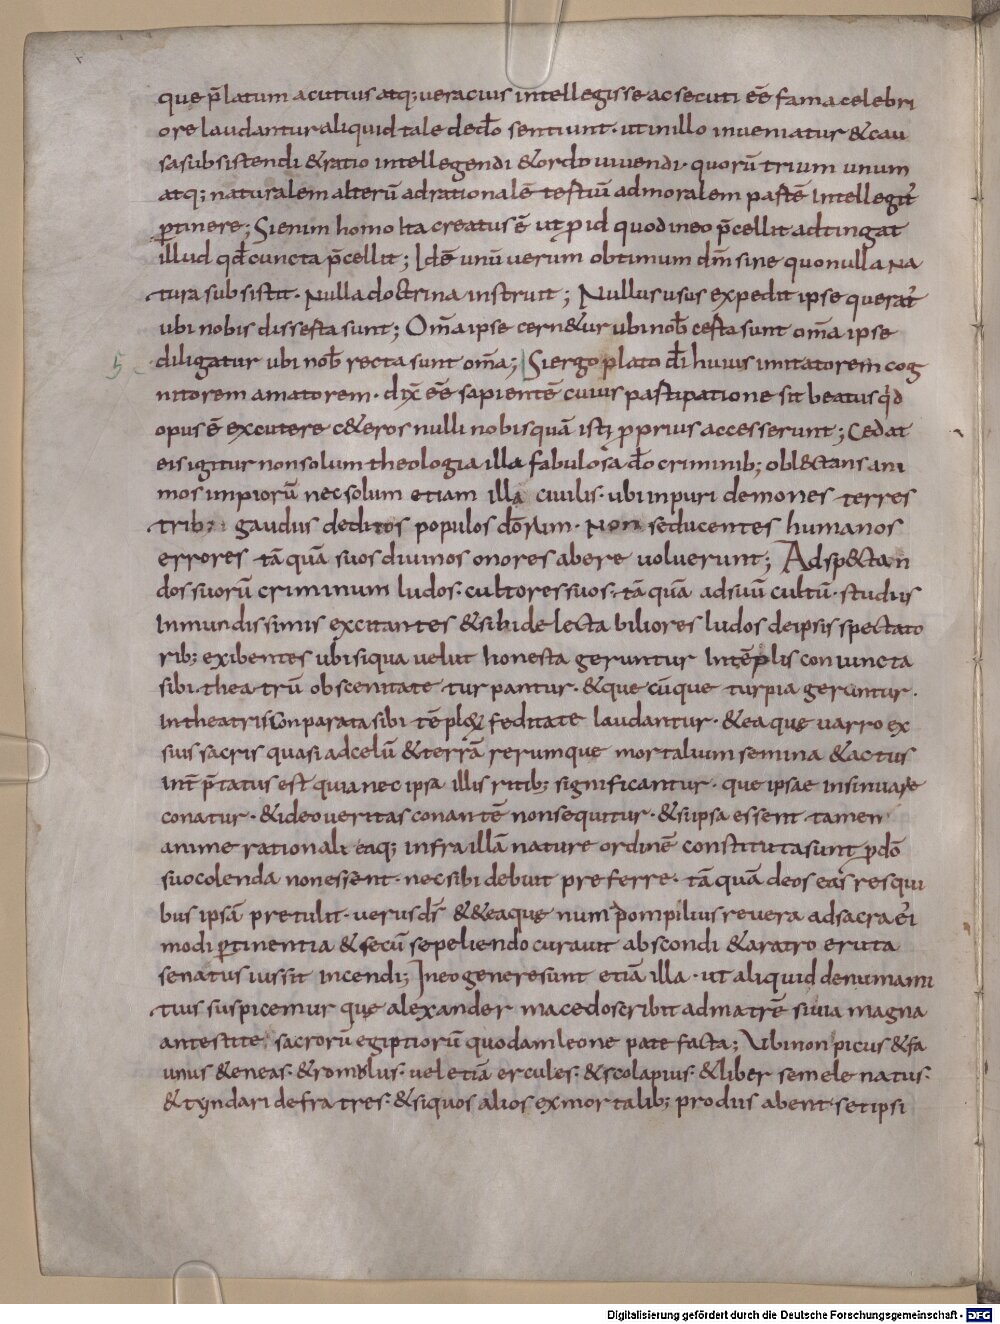 que p̄latum acutius atq; veracius intellegisse ac secuti eē fama celebri
ore laudantur aliquid tale de do̅ sentiunt · ut in illo inveniatur & cau
sa subsistendi & ratio intellegendi & ordo vivendi · quorū trium unum
atq; naturalem alterū ad rationalē tertiū ad moralem partē intellegit᷑
ꝑtinere; Si enim homo ita creatus ē ut ꝑ id quod in eo p̄cellit adtingat
illud qd̄ cuncta p̄cellit; Id ē unū verum obtimum dm̄ sine quo nulla na
tura subsistit · Nulla doctrina instruit; Nullus usus expedit ipse querat᷑
ubi nobis disserta sunt; Om̄a ipse cern&ur ubi nob̄ certa sunt om̄a ipse
5 diligatur ubi nob̄ recta sunt om̄a; Si ergo plato d̄i huius imitatorem cog
nitorem amatorem · dix̄ eē sapientē cuius participatione sit beatus qd
opus ē excutere c&eros nulli nobis quā isti ꝓprius accesserunt; Cedat
eis igitur non solum theologia illa fabulosa do̅ criminib; obl&ctans ani
mos impiorū nec solum etiam illa civilis · ubi inpuri demones terres
trib; gaudiis deditos populos deorum · Non seducentes humanos
errores tā quā suos divinos onores abere voluerunt; Ad sp&ctan
dos suorū criminum ludos · cultores suos · tā quā ad suū cultū · studiis
inmundissimis excitantes & sibi delectabiliores ludos de ipsis spectato
rib; exibentes ubi siqua velut honesta geruntur In tēplis coniuncta
sibi · theatrū obscenitate turpantur · & que cū que turpia geruntur ·
In theatris conparata sibi tēploꝝ feditate laudantur · & ea que varro ex
suis sacris quasi ad celū & terrā rerumque mortalium semina & actus
int̄ p̄tatus est quia nec ipsa illis ritib; significantur · que ipsae insinuare
conatur · & ideo veritas conantē non sequitur · & si ipsa essent tamen
anime rationali eaq; infra illā nature ordinē constituta sunt ꝓ do̅
suo colenda non essent · nec sibi debuit preferre · tā quā deos eas res qui
bus ipsā pretulit · verus ds̄ & & eaque num pompilius revera ad sacra ei᷑
modi ꝑtinentia & secū sepeliendo curavit abscondi & aratro eruta
senatus iussit incendi; In eo genere sunt etiā illa · ut aliquid de numa mi
tius suspicemur que alexander macedo scribit ad matrē sivi a magna
antestite sacrorū egiptiorū quodam leone patefacta; Ubi non picus & fa
unus & eneas · & romolus · vel etiā ercules · & scolapius · & liber semele natus ·
& tyndari defratres · & si quos alios ex mortalib; pro diis abent · set ipsi
Digitalisierung gefördert durch die Deutsche Forschungsgemeinschaft - DFG